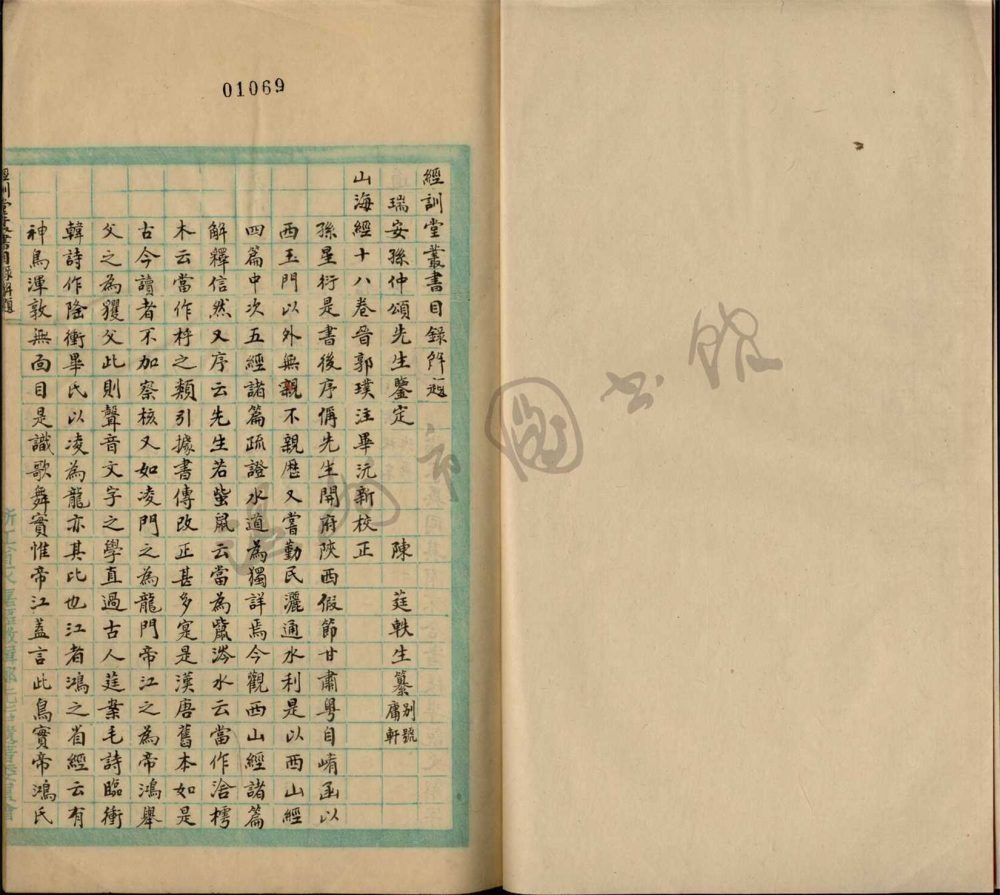 01069
經訓堂叢書目録解題
瑞安孫仲頌先生鑒定 陳 莛軼生纂 别號庸軒
山海經十八卷晉郭璞注畢沅新校正
孫星衍是書後序偁先生開府陝西假節甘肅粤自崤函以
西玉門以外無親不親歷又嘗勤民灑通水利是以西山經
四篇中次五經諸篇疏證水道為獨詳焉今觀西山經諸篇
解釋信然又序云先生若蚩鼠云當為䶅涔水云當作洽樗
木云當作杽之類引據書傳改正甚多寔是漢唐舊本如是
古今讀者不加察核又如凌門之為龍門帝江之為帝鴻舉
父之為玃父此則聲音文字之學直過古人莛案毛詩臨衝
韓詩作隆衝畢氏以凌為龍亦其比也江者鴻之省經云有
神鳥渾敦無面目是識歌舞實惟帝江葢言此鳥實帝鴻氏
經訓堂叢書目録解題
市圖書館